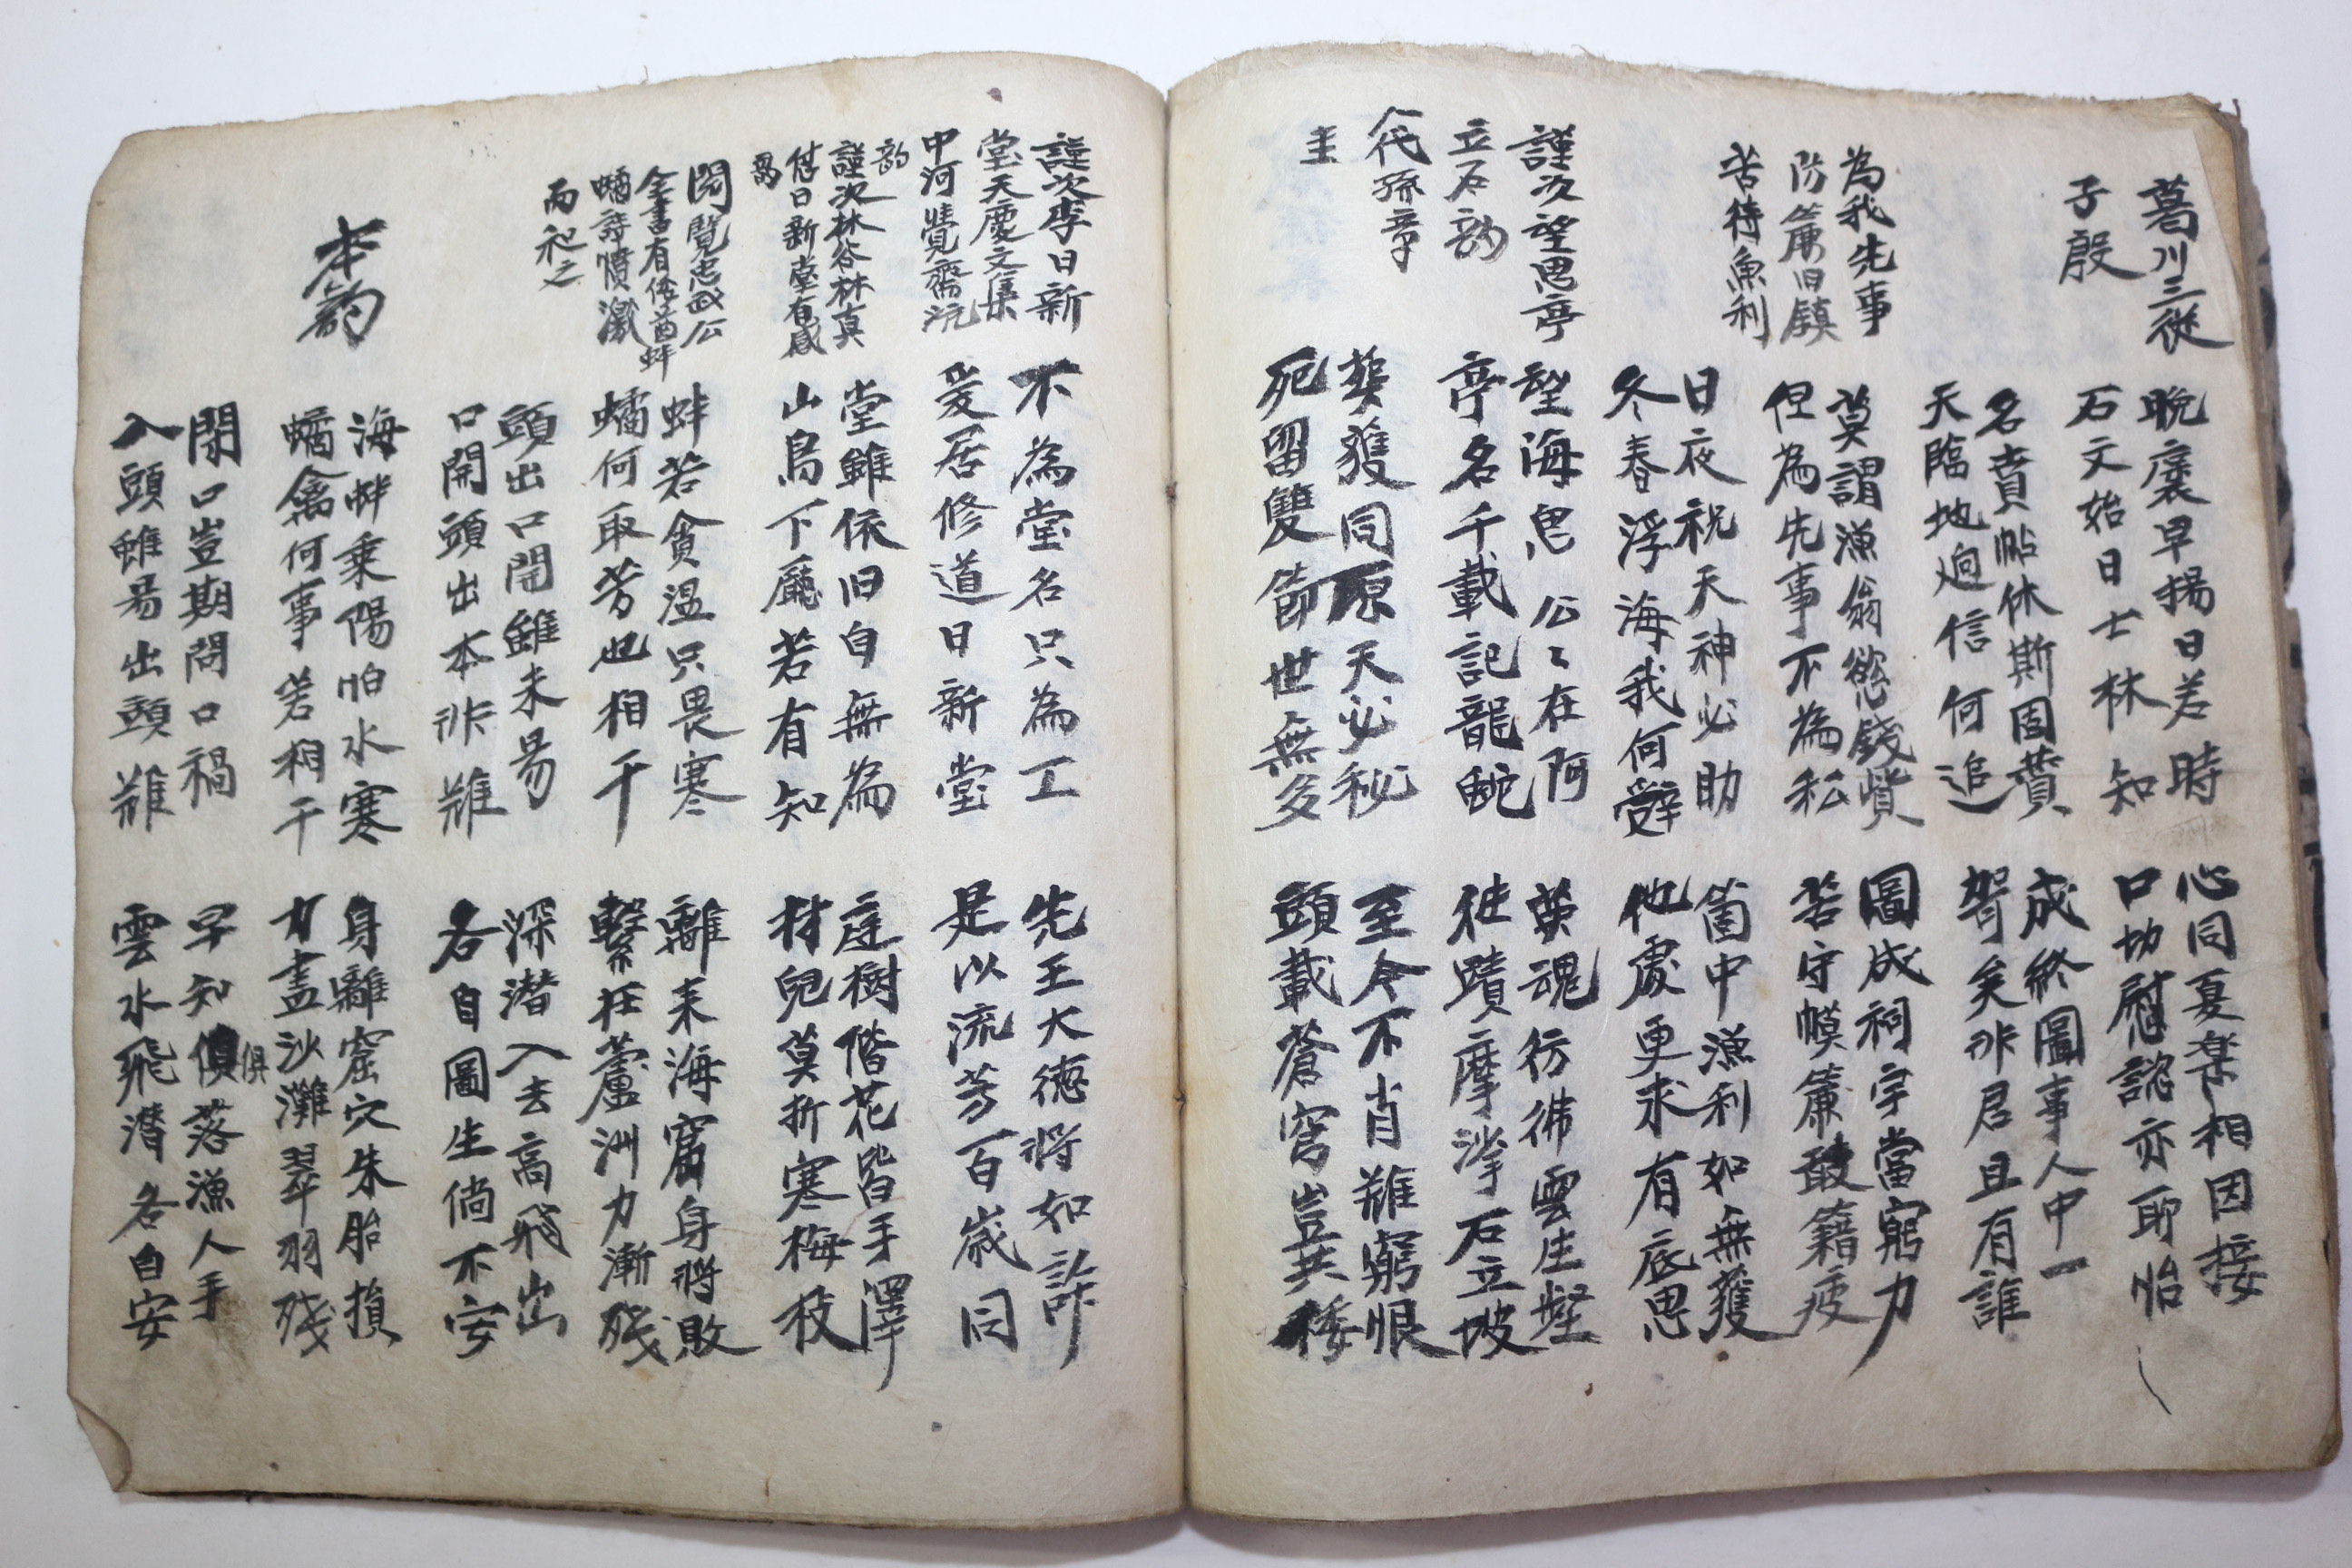 葛川三從
子殷
晩裵早揚日差時
石文始日士林知
心同憂樂相因接
口切慰認亦耶怡
名賁帖休斯固賛
天臨地逈信何追
成終圖事人中一
哿矣非君且有誰
為我先事
防簾旧鎮
苦待魚利
莫謂漁翁慾錢貲
但為先事不為私
圖成祠宇當窮力
若守幙簾敢籍疲
日夜祝天神必助
冬春浮海我何辭
箇中漁利如無獲
他處更求有底思
謹次望思亭
立石韵
望海思公公在阿
亭名千載記龍蛇
英魂彷彿雲生壑
往蹟摩挲石立坡
八代孫章
圭
獎獲同原天必秘
死留雙節世無多
至今不肖難窮恨
頭載蒼穹豈共
謹次李日新
堂天慶文集
中河覺齋沆
韵
不為堂名只為工
爰居修道日新堂
先王大德將如許
是以流芳百歲同
謹次林谷林真
怤日新堂有感
韵
堂雖依旧自無為
山鳥下廳若有知
庭樹階花皆手澤
村兒莫折寒梅枝
閱覽忠武公
全書有倭酋蚌
蟠詩憤激
而和之
蚌若貪溫只畏寒
蟠何取芳也相干
離来海窟身將敗
繫在蘆洲力漸殘
頭出口開雖未易
口開頭出本非難
深潜入去高飛出
各自圖生倘不安
本韵
海蚌乗陽怕水寒
蟠禽何事苦相干
身離窟穴朱胎損
力盡沙灘翠羽殘
閉口豈期開口禍
入頭雖易出頭難
早知俱落漁人手
雲水飛潜各自安